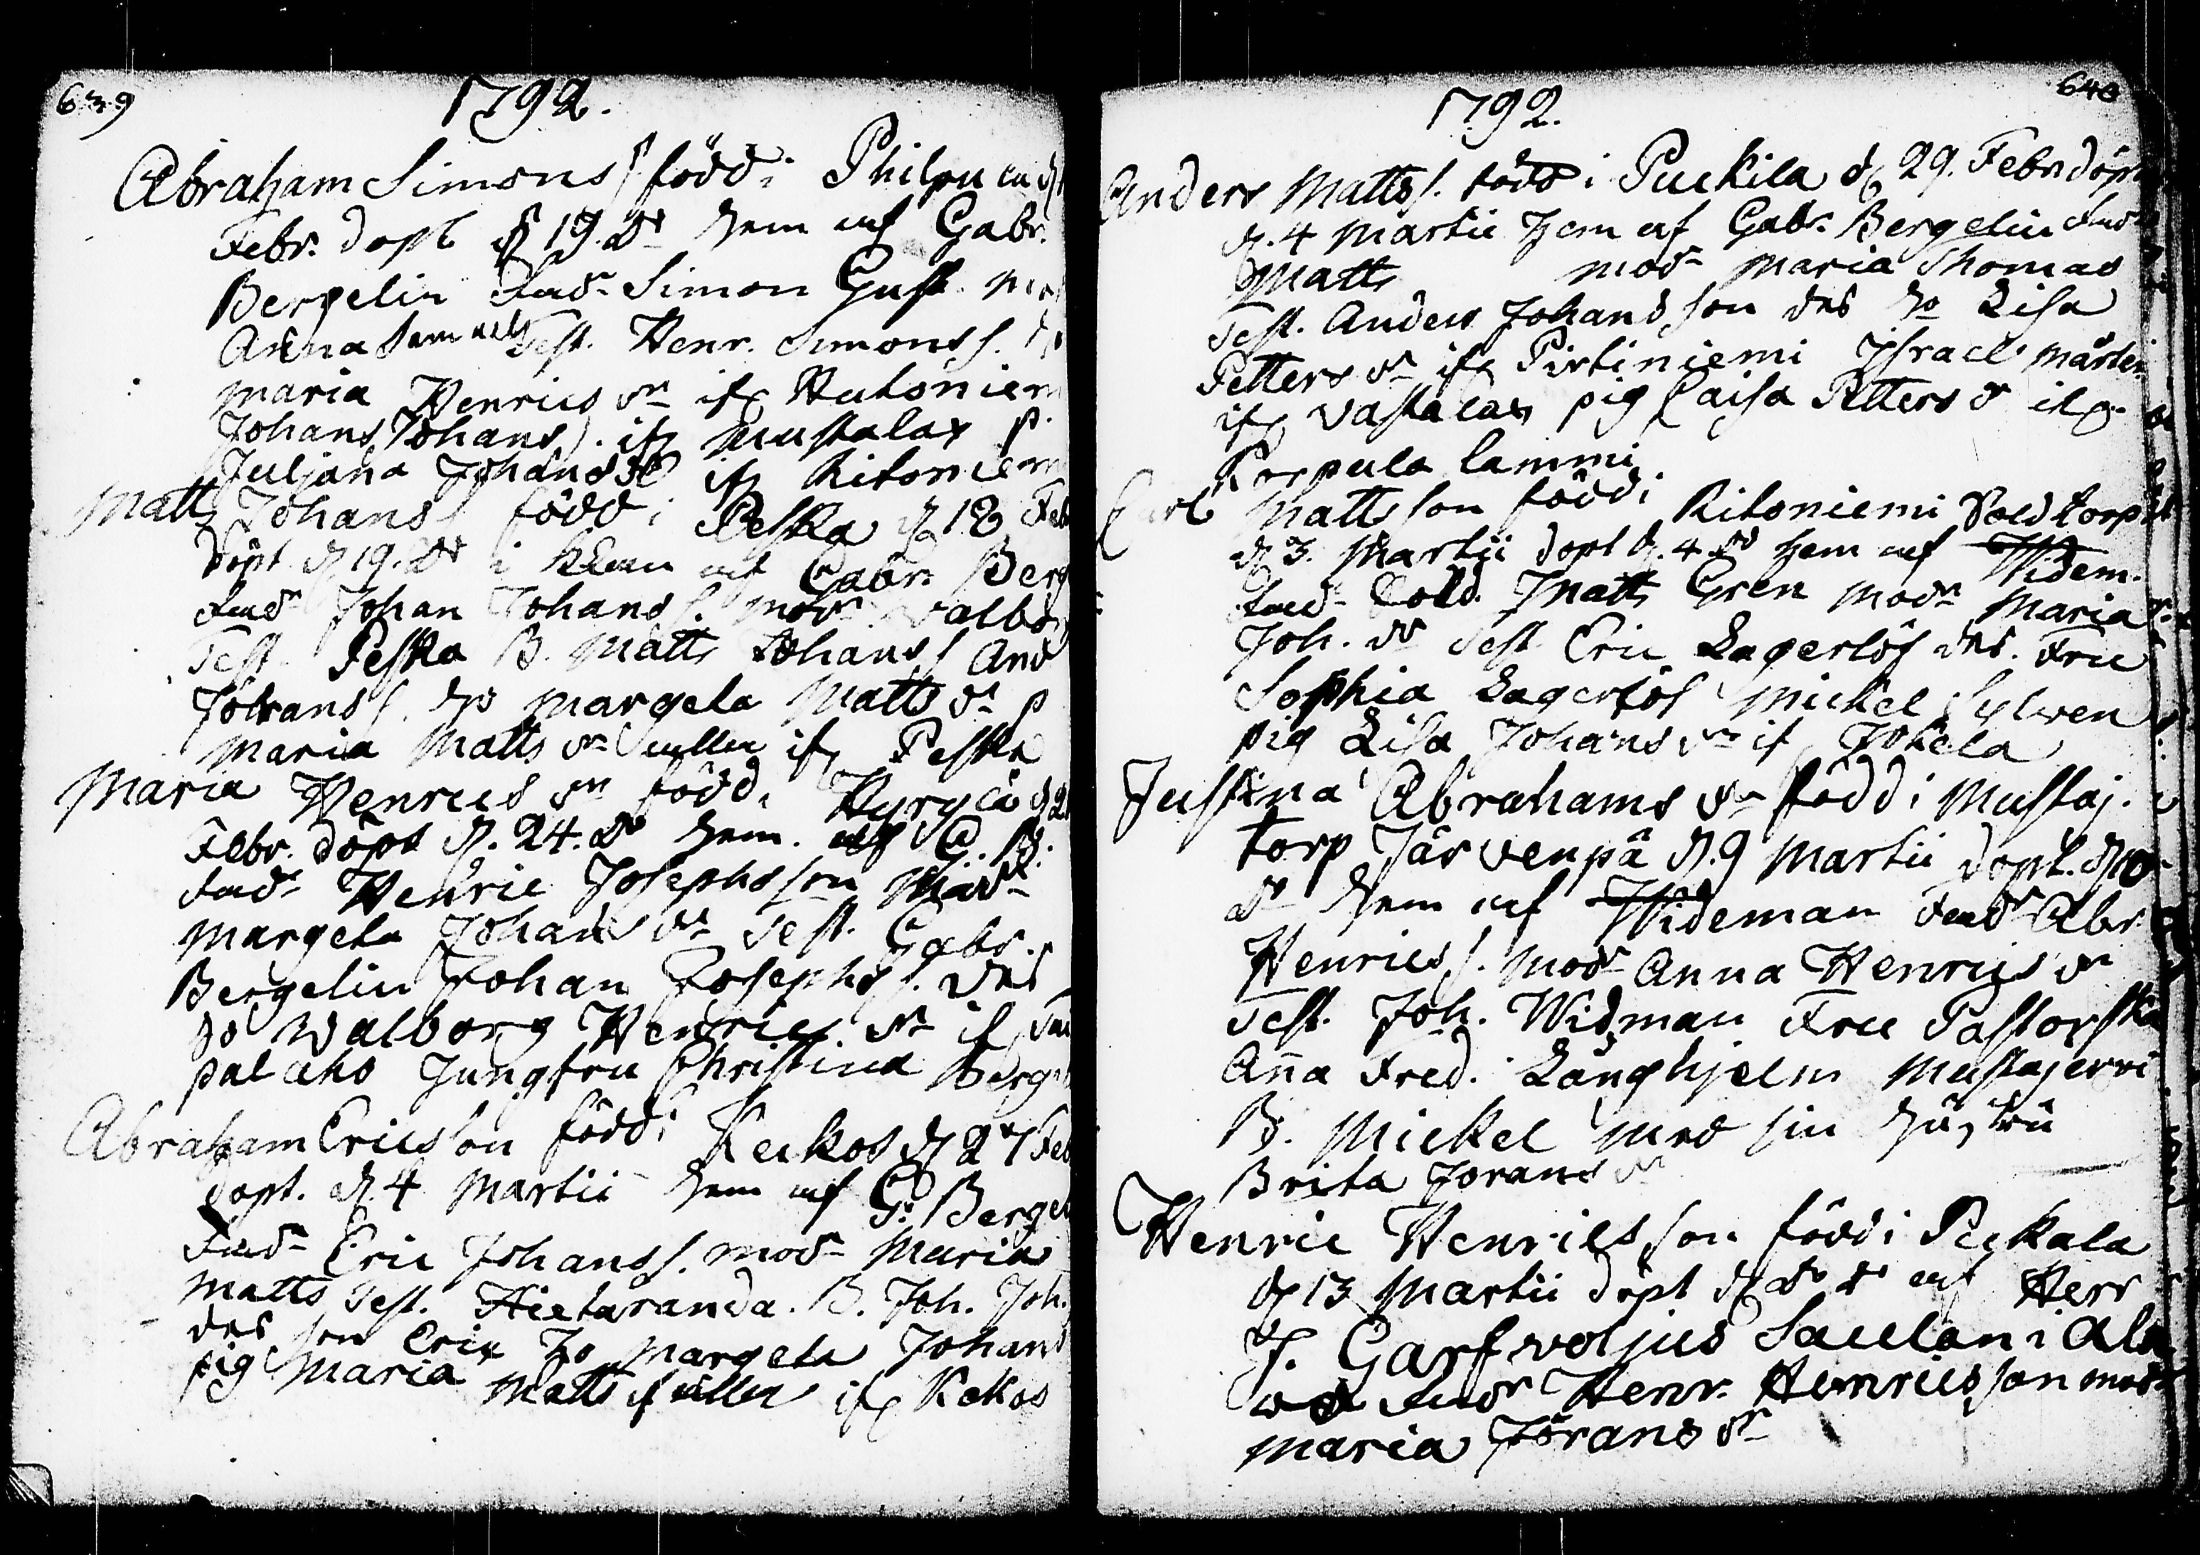 639
1792.
Abraham Simons s. född i Philpu
Febr. döpt d. 19. do hem af Gabr.
Bergelin Fadr Simon Gust. Mo
Anna Samuels Test. Henr. Simons s.
Maria Henrics dr ifr Hutoniem
Johans Johans s. ifr Mustalax p.
Juljana Johans dr ifr Kitoniem
Matts Johans s. född i Peska d. 18 Feb
döpt d. 19. do i hem af Gabr. Berg
Fadr Johan Johans s. modr Valbo
Test. Peska B. Matts Johans s. And
Johans s. ho Margeta Matts dr p
Maria Matts dr ifr Peska
Maria Henrics dr född i Hyrylä d 2
Febr. döpt d. 24. do hem. af G. B.
Fadr Henric Josephsson Modr
Margeta Johans dr Test. Gabr.
Bergelin Johan Josephs s. des
ho Walborg Henrics dr if
pal aho Jungfru Christina Berge
Abraham Ericsson född i Keckos d 27 Feb
döpt. d. 4 Martii hem af G. Berge
Fadr Eric Johans s. modr Maria
Matts Test. Hietaranda. B. Joh. Joh.
des son Eric ho Margeta Johans
pig Maria Matts ifr Kekos
640
1792.
Anders Matts s. född i Puckila d 29. Febr döpt
d. 4 Martii hem af Gabr. Bergelin Fadr
Matts modr Maria Thomas
Test. Anders Johansson des ho Lisa
Petters dr ifr Pirtiniemi Israel Mårten
ifr Vastalax pig Caisa Petters dr ifr
Korpula lammi
Carl Mattsson född i Kitoniemi Sold torp
d 3. Martii döpt d. 4 do hem af Widem.
Fadr Sold. Matts Gren modr Maria
Joh. dr Test Eric Lagerlöf des. Fru
Sophia Lagerlöf Mickel Sylven
pig Lisa Johans dr if Jokela
Justina Abrahams dr född i Mustaj.
torp Järvenpä d. 9 Martii döpt. d 10
do hem af Wideman Fadr Abr
Henrics s. modr Anna Henrics dr
Test. Joh. Widman Fru Pastorska
Anna Fred. Långhjelm Mustajervi
B. Mickel med sin hustru
Brita Jörans dr
Henric Henricsson född i Peckala
d 13 Martii döpt d do do af Herr
J. Garfvoljus Saulan i Ala
wo Fadr Henr. Henricsson modr
Maria Jörans dr